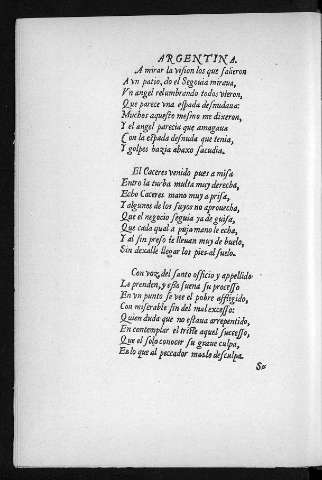 ARGENTINA.
A mirar la vision los que salieron
A vn patio, do el Segouia miraua,
Vn angel relumbrando todos vieron,
Que parece vna espada desnudaua:
Muchos aquesto mesmo me dixeron,
Y el angel parecia que amagaua
Con la espada desnuda que tenia,
Y golpes hazia abaxo sacudia.
El Caceres venido pues a misa
Entro la turba multa muy derecha,
Echo Caceres mano muy a prisa,
Y algunos de los suyos no aprouecha,
Que el negocio seguia ya de guisa,
Que cada qual a puja mano le echa,
Y al fin preso le lleuan muy de buelo,
Sin dexalle llegar los pies al suelo.
Con voz, del santo officio y appellido
Le prenden, y esso suena su processo
En vn punto se vee el pobre affligido,
Con miserable fin del mal excesso:
Quien duda que no estaua arrepentido,
En contemplar el triste aquel sucesso,
Que el solo conocer su graue culpa,
Es lo que al peccador mas le desculpa.
Su